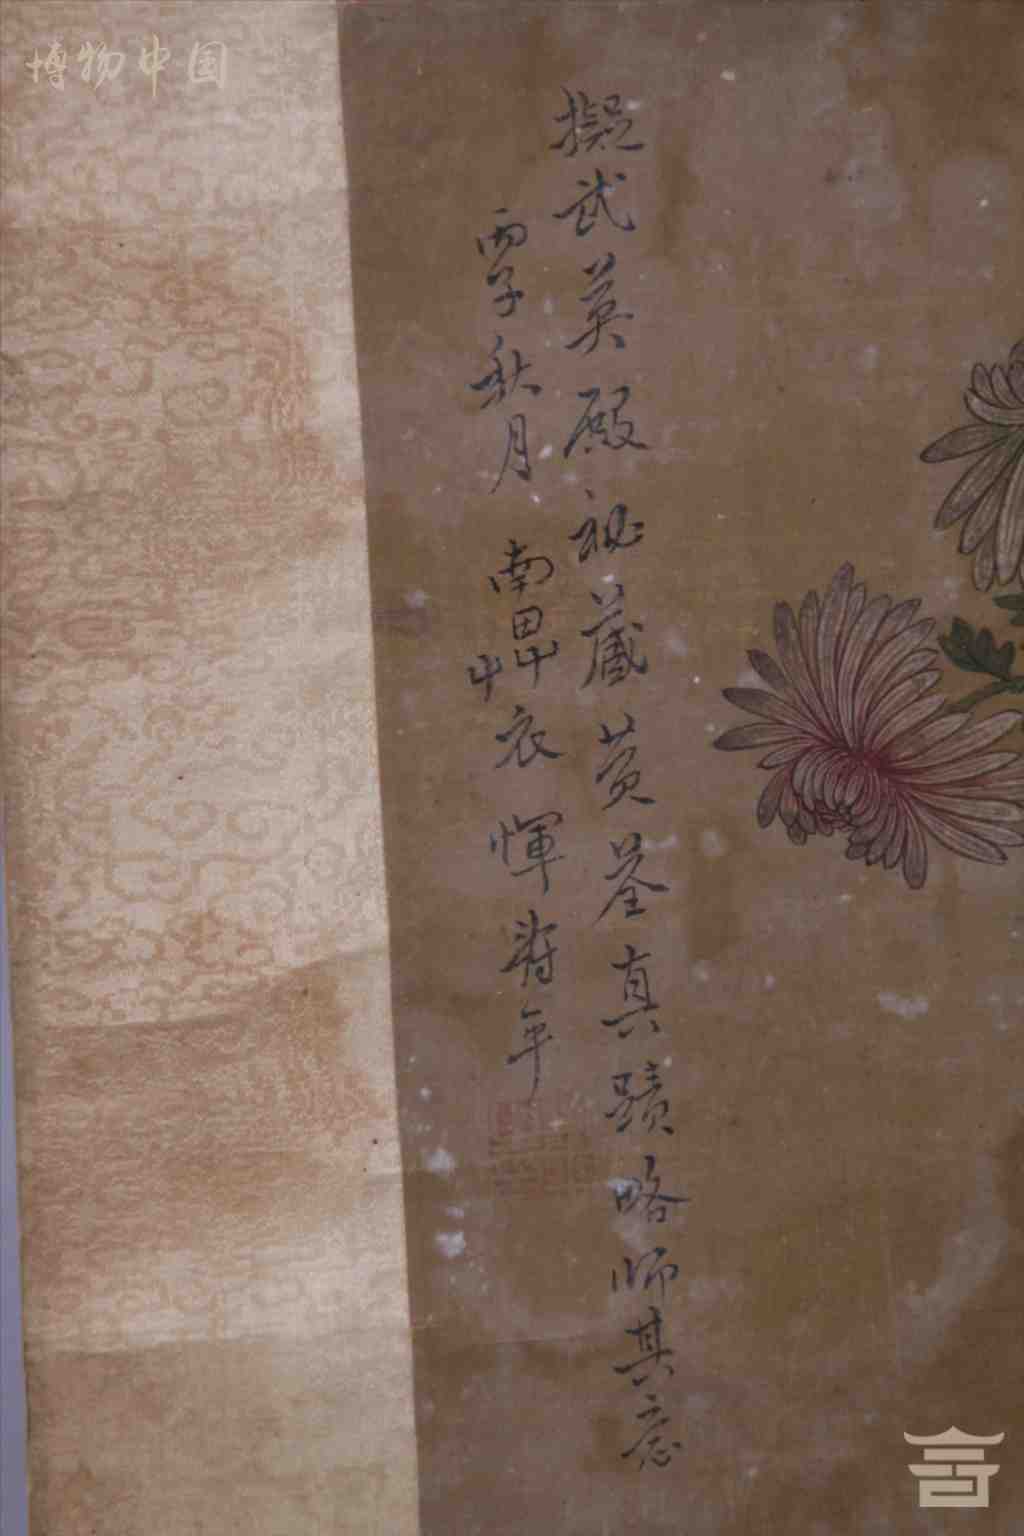 博物中国
擬武英殿祕藏黃筌真蹟略師其意
丙子秋月 南田艸衣惲壽平